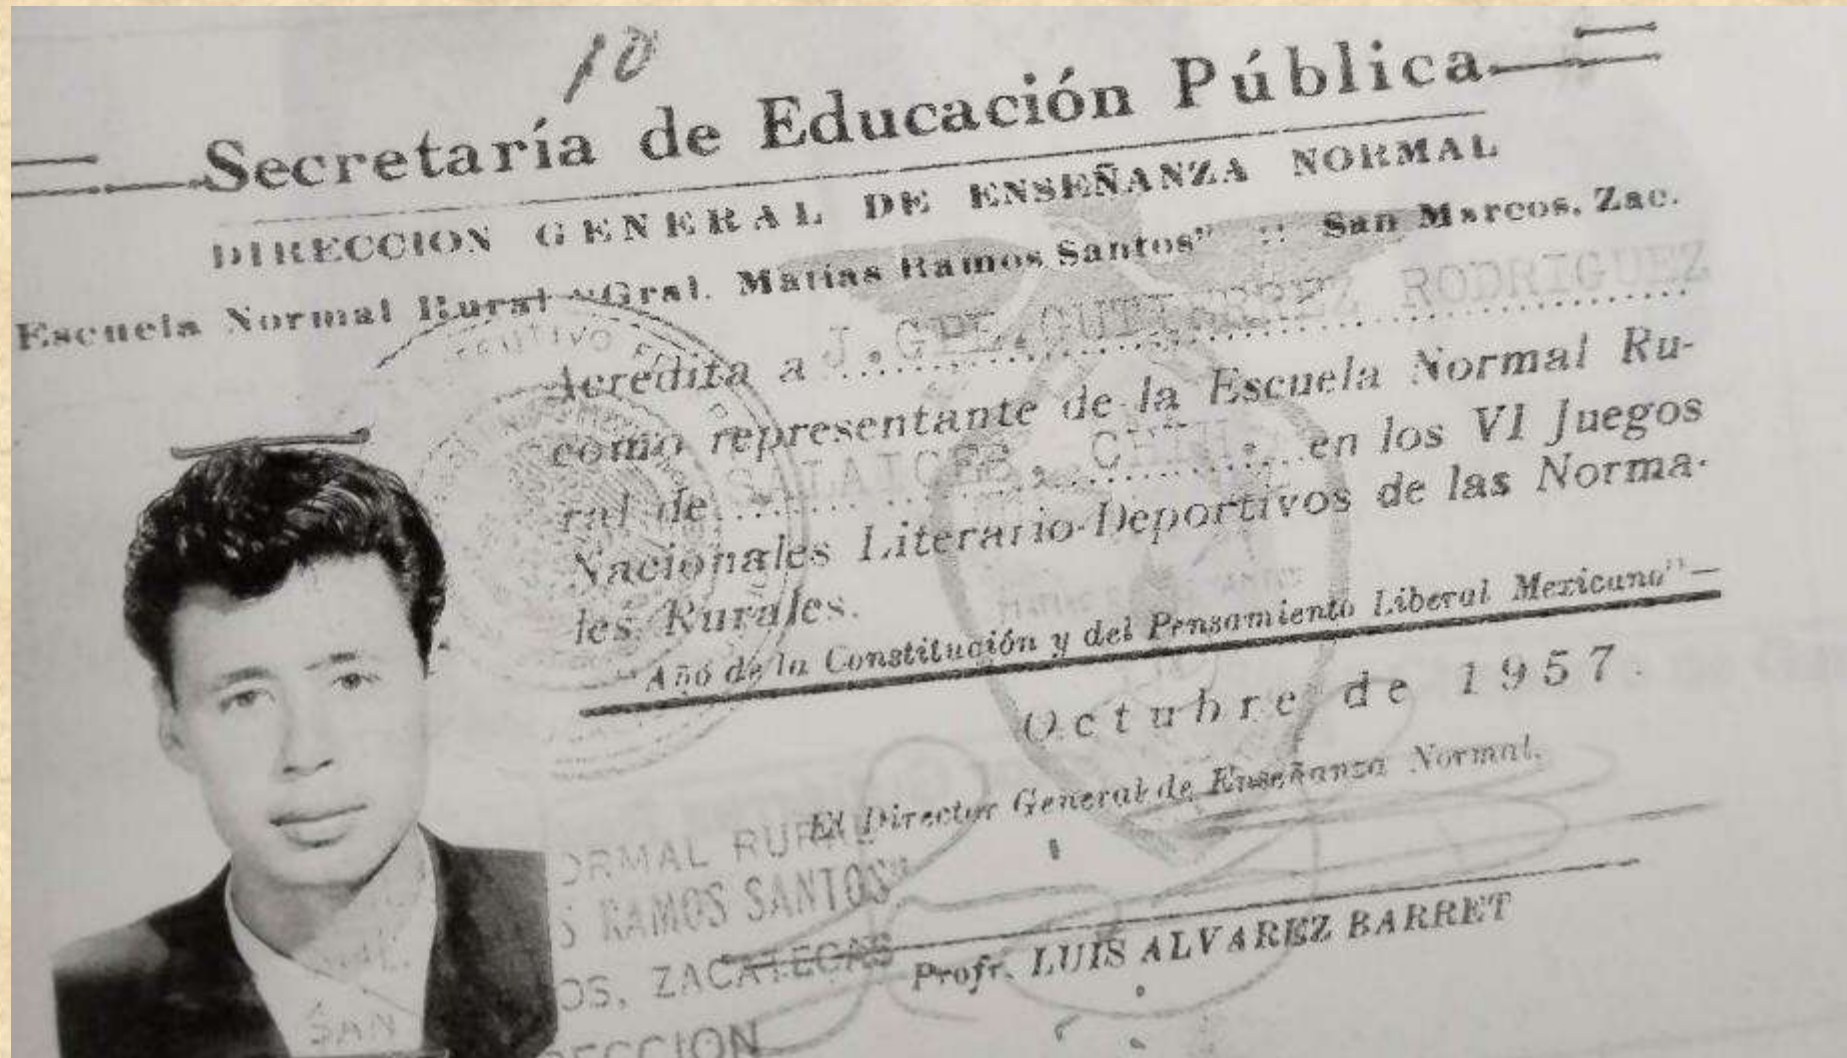 10
Secretaría de Educación Pública
DIRECCION GENERAL DE ENSEÑANZA NORMAL
Escuela Normal Rural "Gral. Matías Ramos Santos" :: San Marcos, Zac.
Acredita a J. GPE. GUTIERREZ RODRIGUEZ
como representante de la Escuela Normal Ru-
ral de SALAICES, CHIH. en los VI Juegos
Nacionales Literario-Deportivos de las Norma-
les Rurales.
"Año de la Constitución y del Pensamiento Liberal Mexicano"—
Octubre de 1957.
El Director General de Enseñanza Normal.
Profr. LUIS ALVAREZ BARRET
ORMAL RURAL
S RAMOS SANTOS"
OS, ZACATECAS
SAN
ECCION